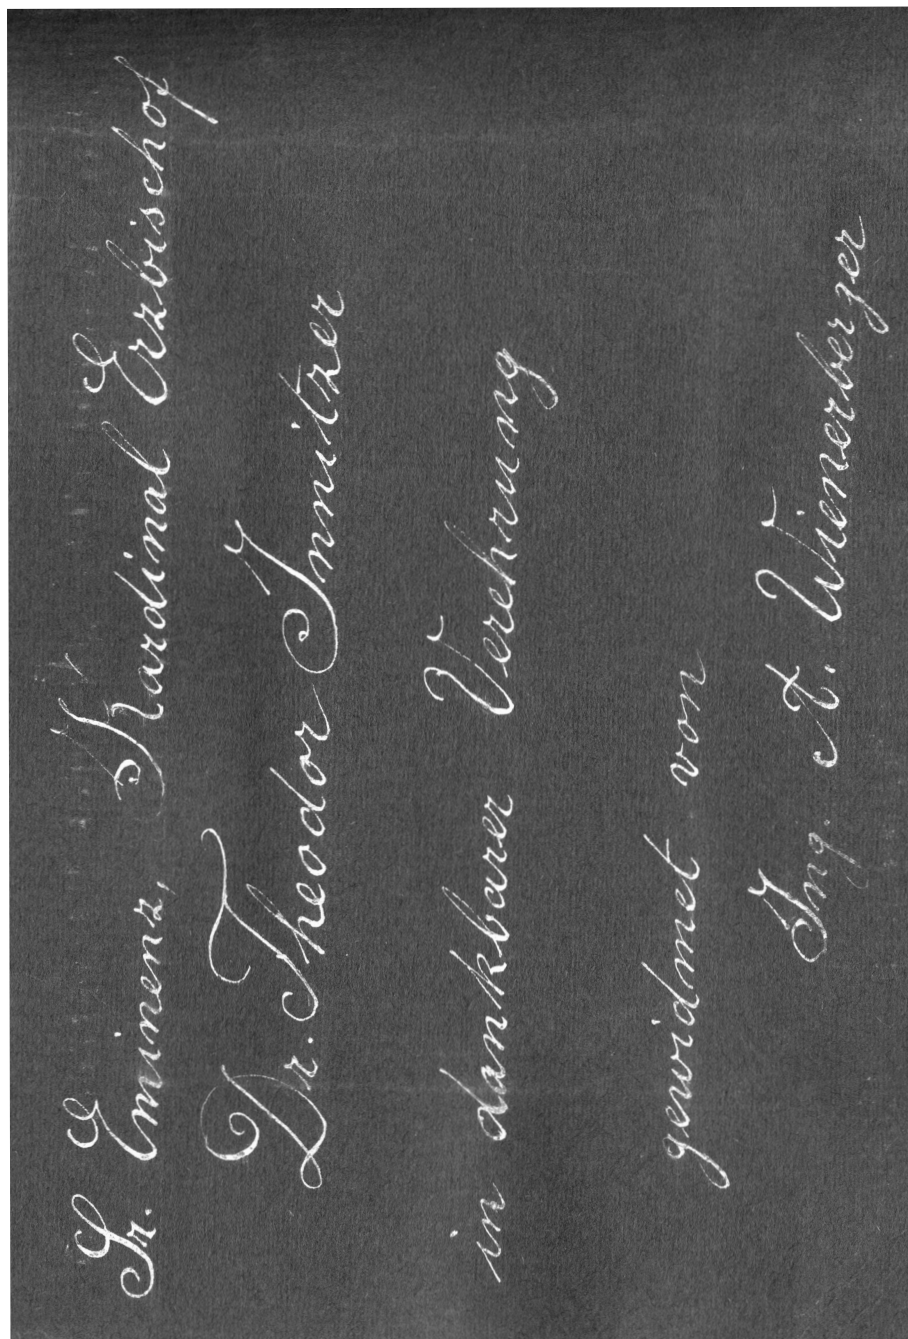 Sr. Eminenz, Kardinal Erzbischof
Dr. Theodor Innitzer
in dankbarer Verehrung
gewidmet von
Ing. A. Wienerberger